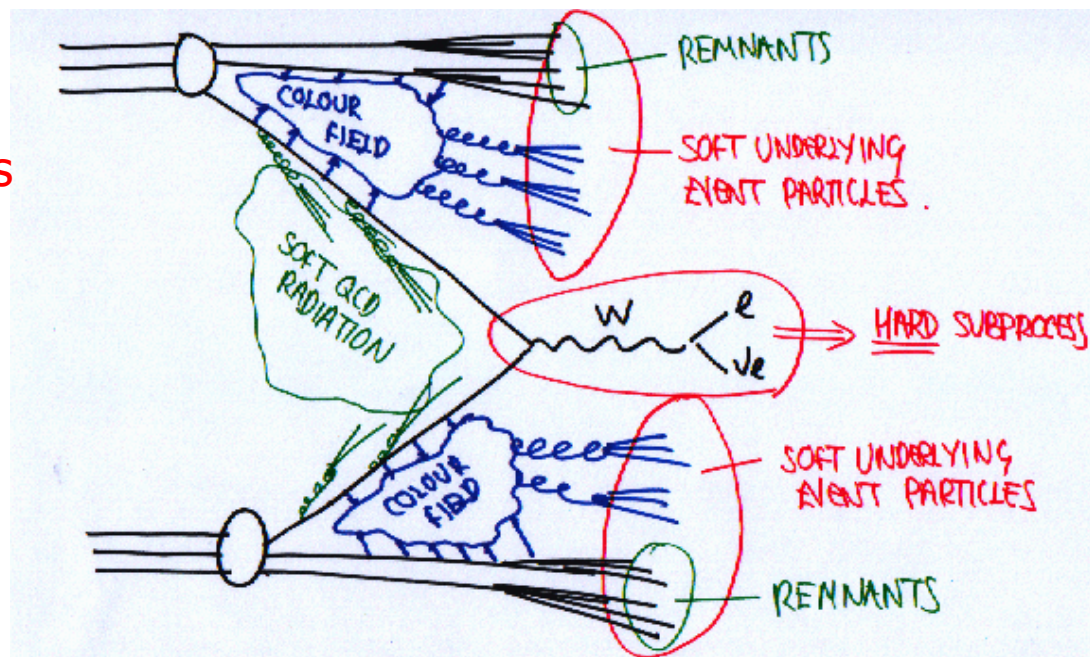 REMNANTS
COLOUR
FIELD
SOFT UNDERLYING
EVENT PARTICLES.
s
SOFT QCD
RADIATION
W
e
νe
HARD SUBPROCESS
COLOUR
FIELD
SOFT UNDERLYING
EVENT PARTICLES
REMNANTS